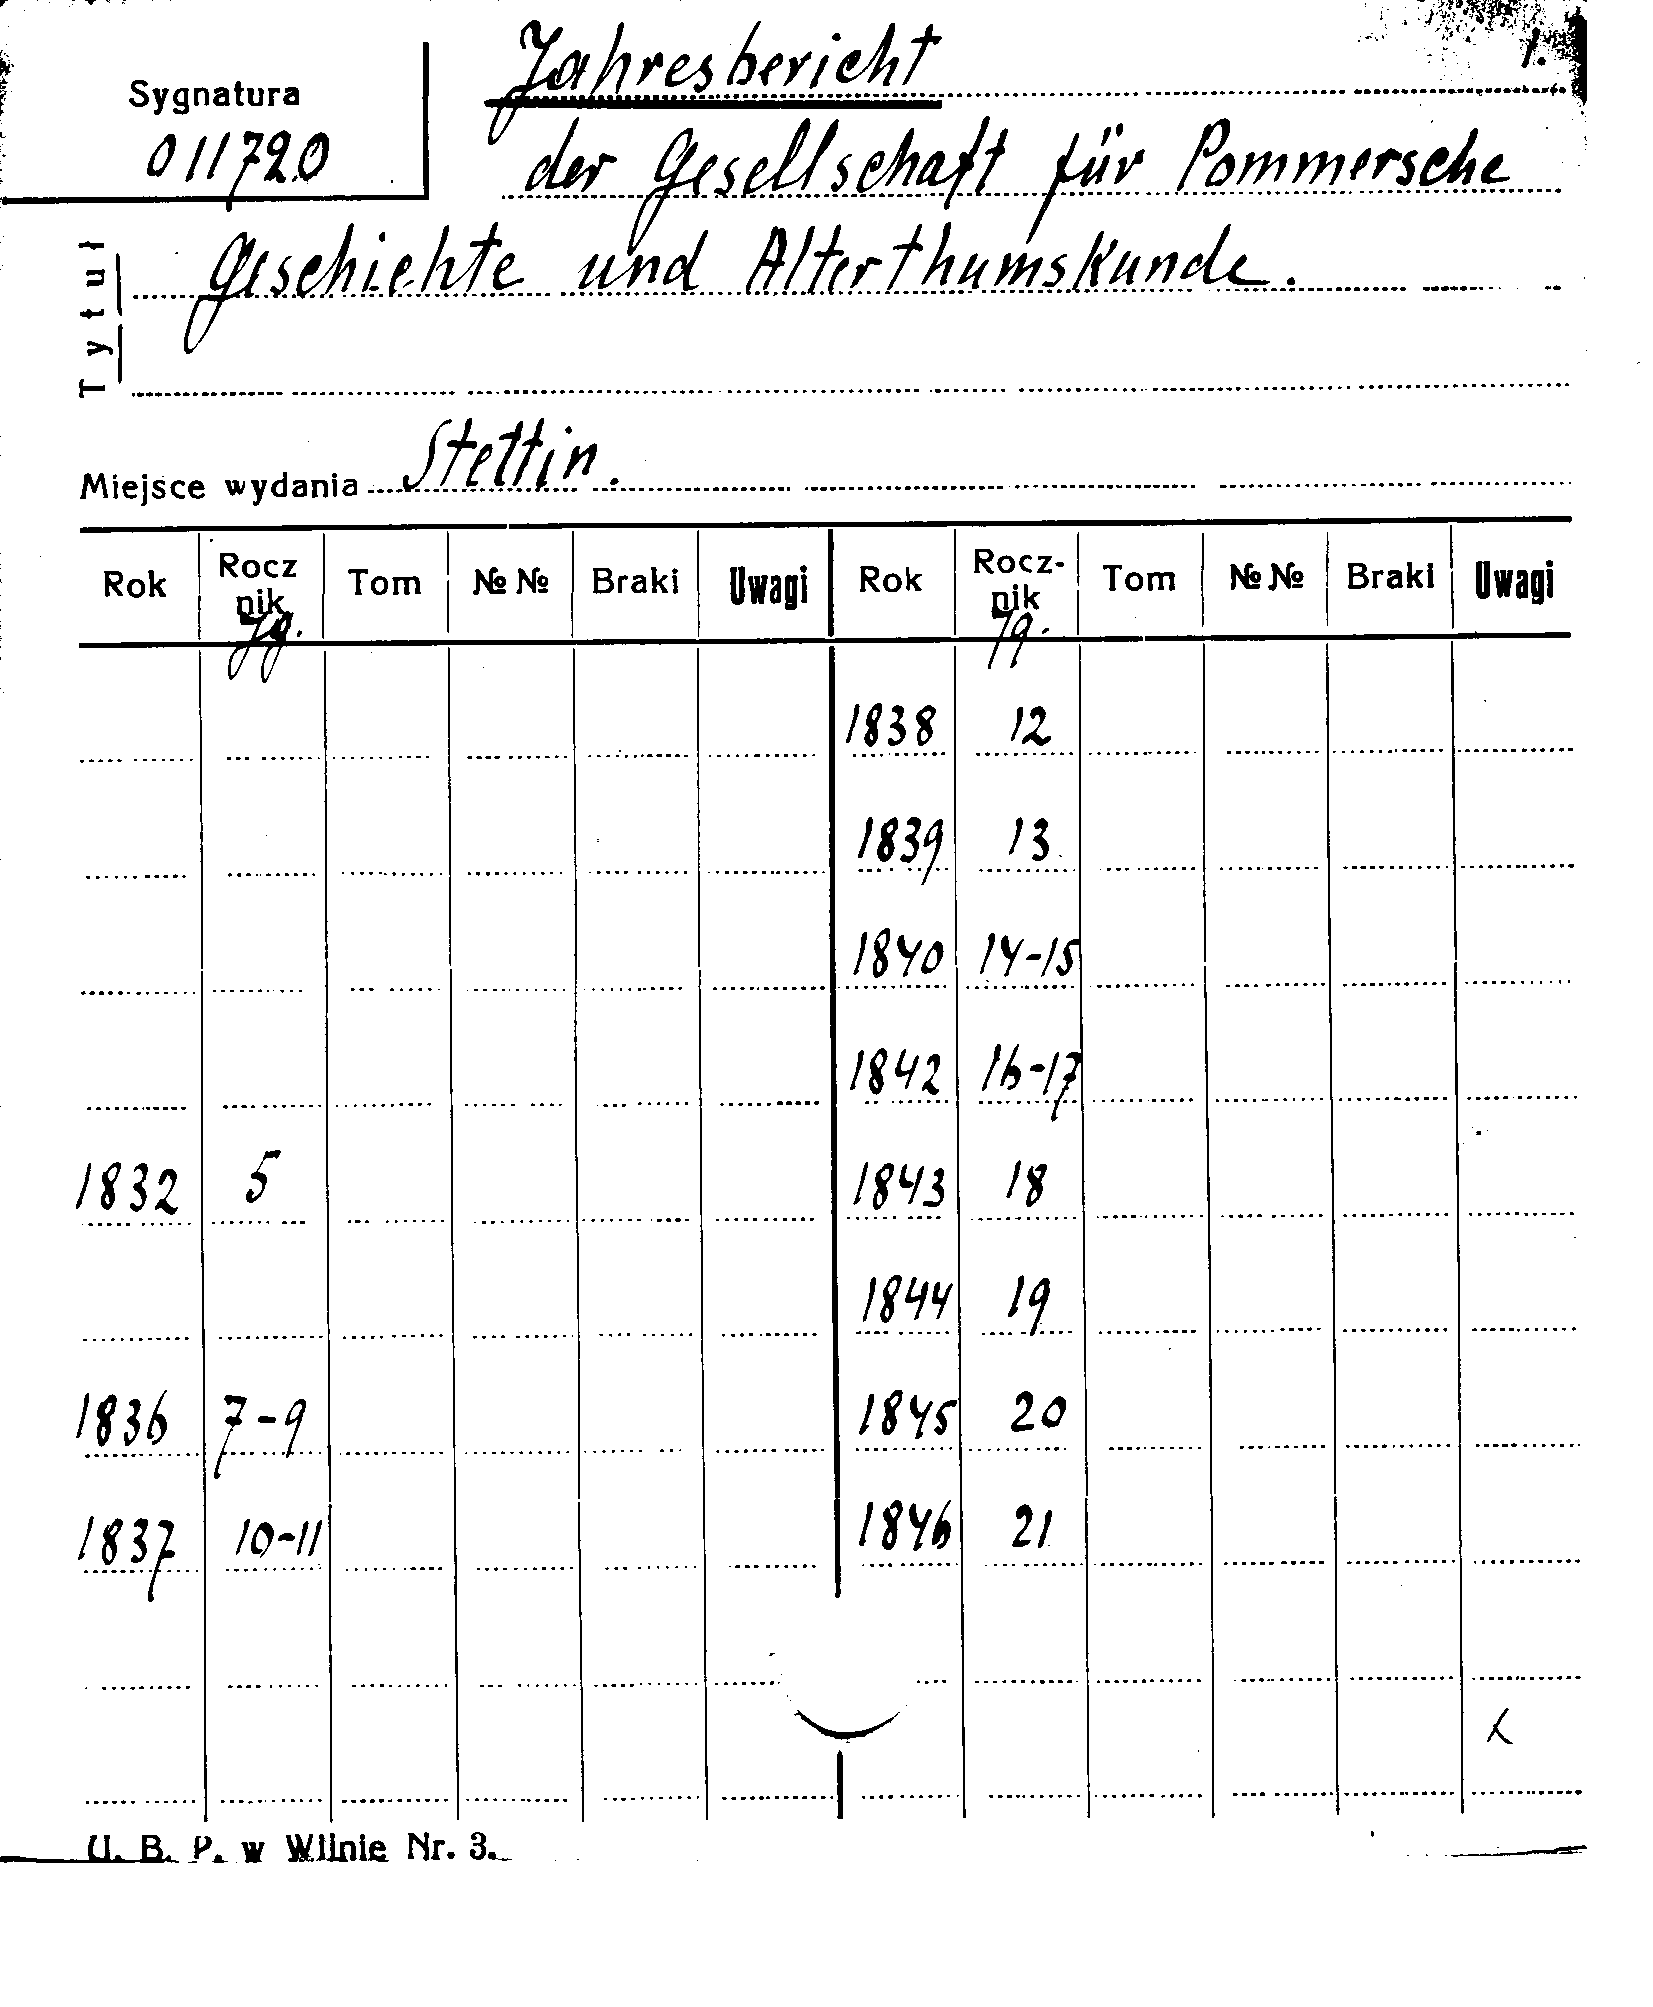 1.
Sygnatura
011720
Jahresbericht
der Gesellschaft für Pommersche
Tytuł
Geschichte und Alterthumskunde.
Miejsce wydania Stettin.
Rok Rocznik Jg. Tom №№ Braki Uwagi Rok Rocz-nik Jg. Tom №№ Braki Uwagi
1838 12
1839 13
1840 14-15
1842 16-17
1832 5 1843 18
1844 19
1836 7-9 1845 20
1837 10-11 1846 21
U. B. P. w Wilnie Nr. 3.